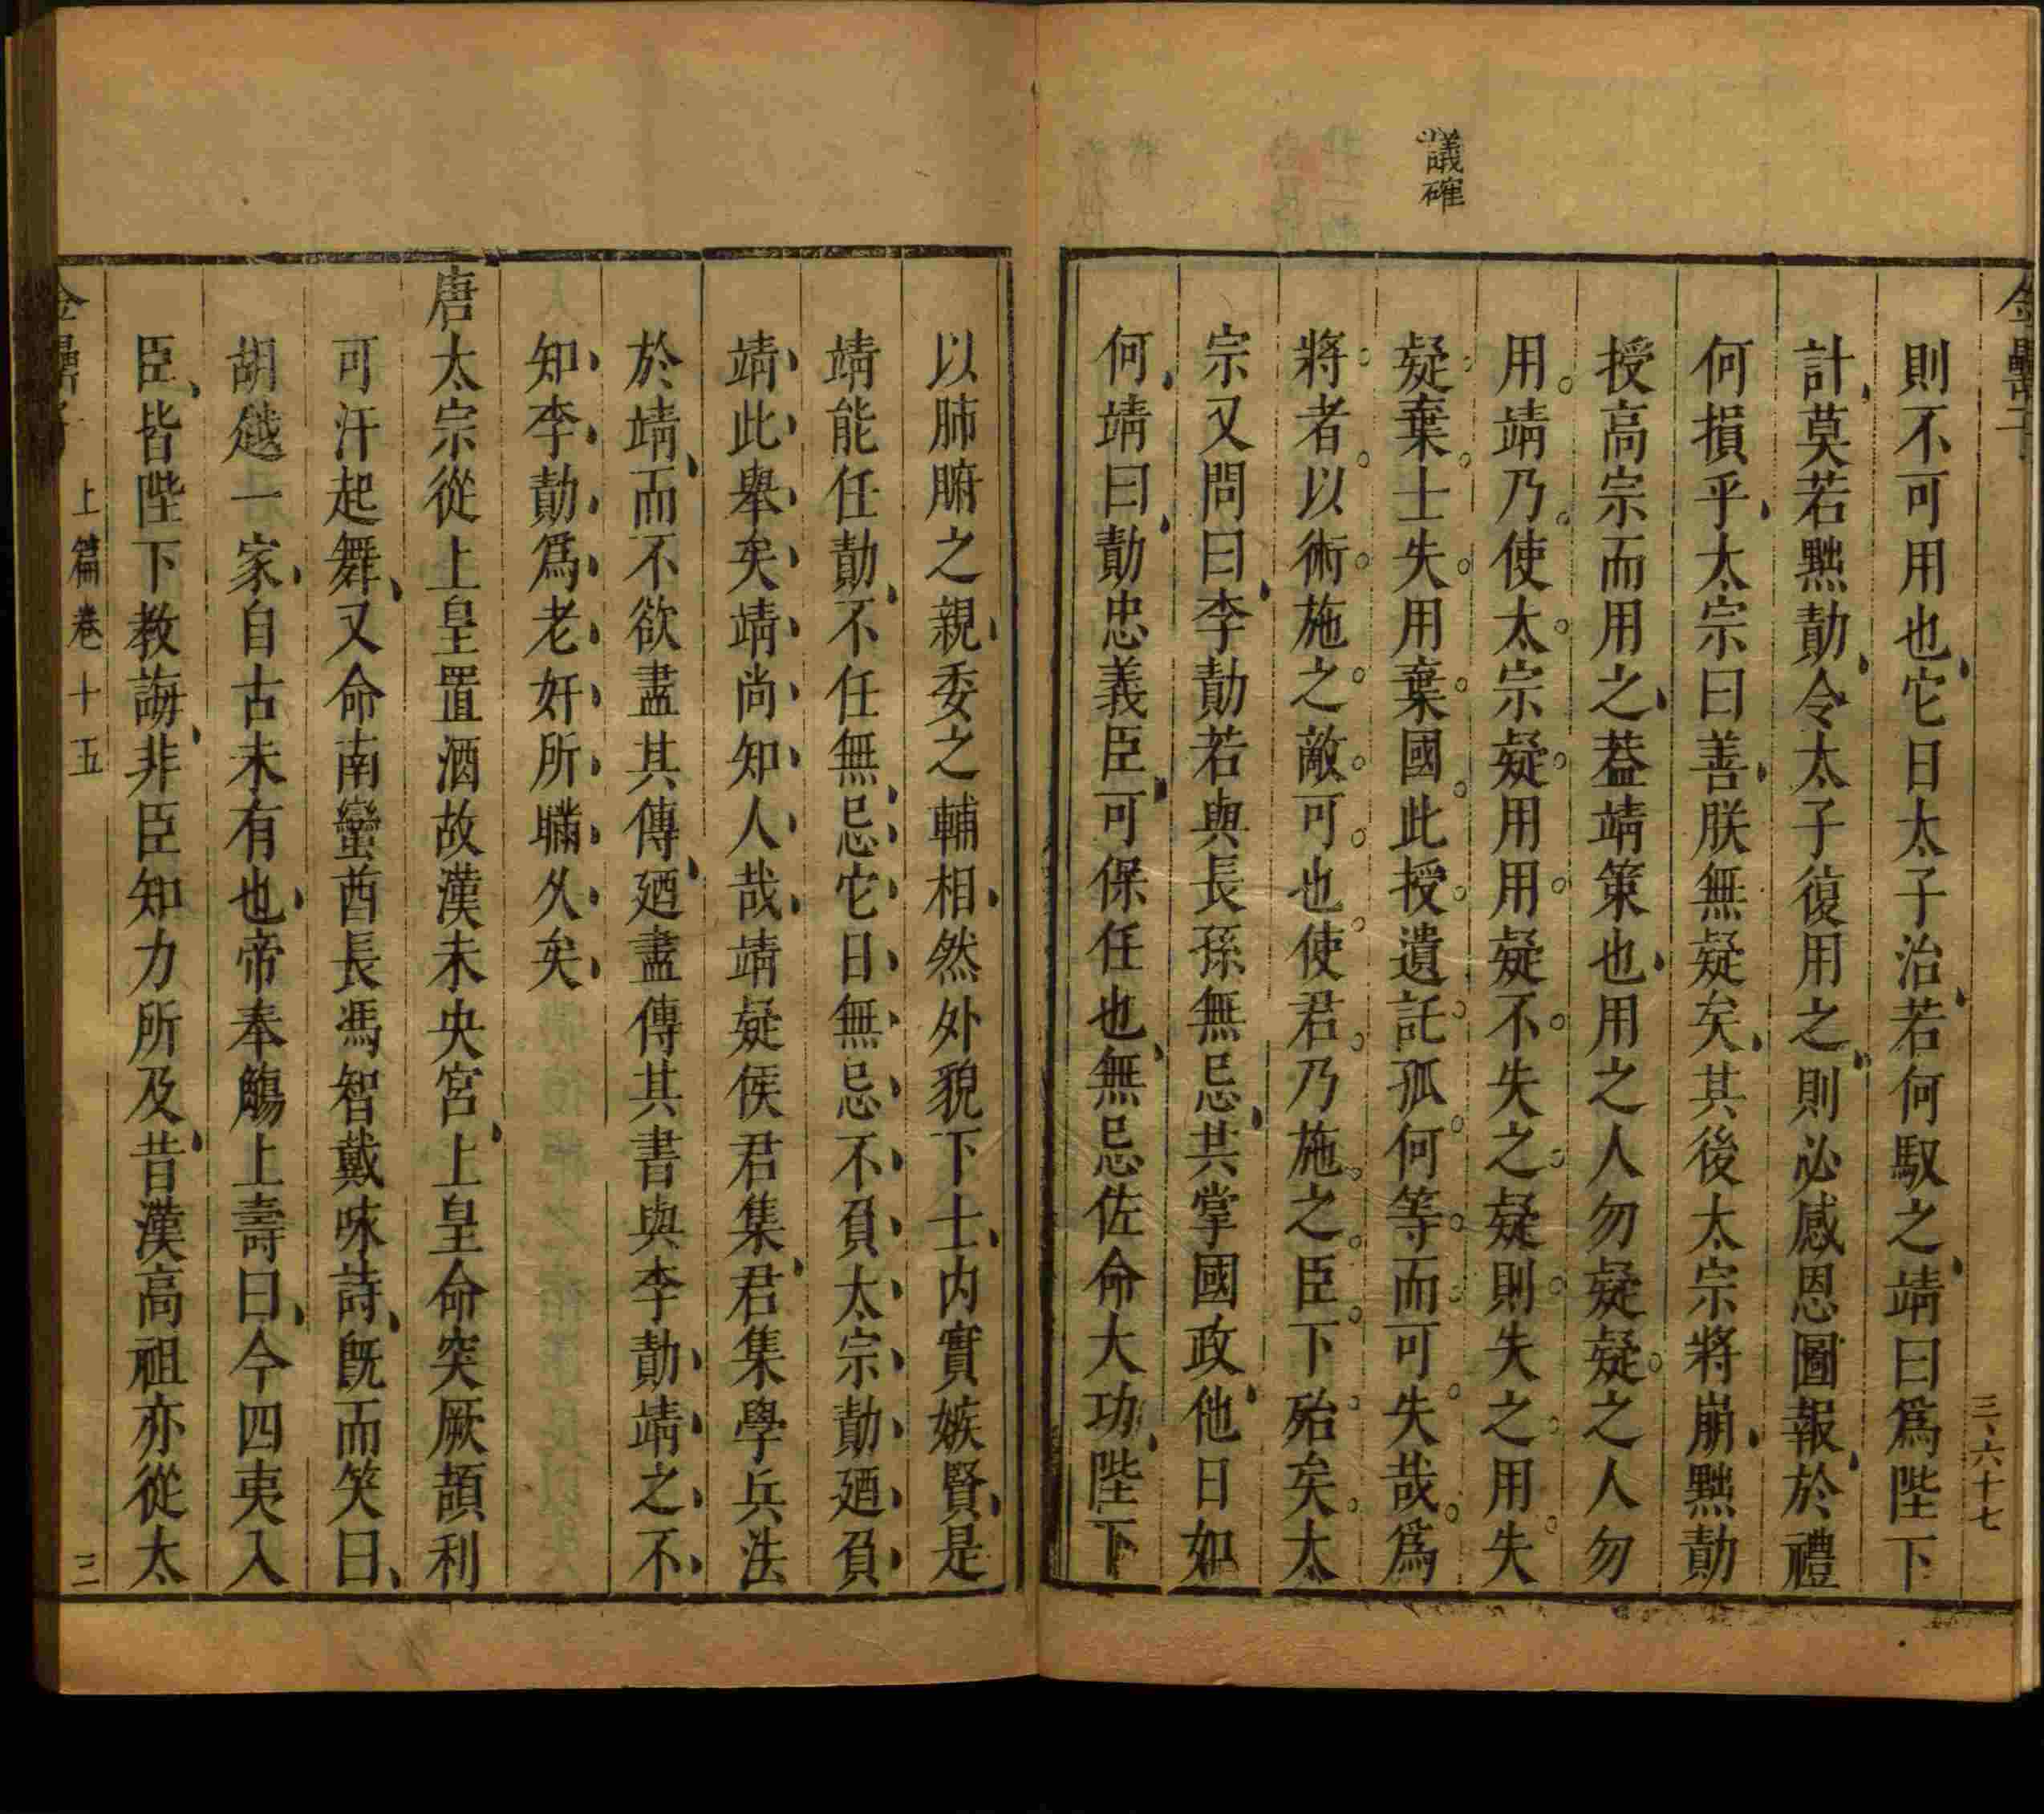 議確
三、六十七
則不可用也它日太子治若何馭之靖曰爲陛下
計莫若黜勣令太子復用之則必感恩圖報於禮
何損乎太宗曰善朕無疑矣其後太宗將崩黜勣
授高宗而用之葢靖策也用之人勿疑疑之人勿
用靖乃使太宗疑用用疑不失之疑則失之用失
疑棄士失用棄國此授遺託孤何等而可失哉爲
將者以術施之敵可也使君乃施之臣下殆矣太
宗又問曰李勣若與長孫無忌共掌國政他日如
何靖曰勣忠義臣可保任也無忌佐命大功陛下
以肺腑之親委之輔相然外貌下士内實嫉賢是
靖能任勣不任無忌它日無忌不負太宗勣廼負
靖此舉矣靖尚知人哉靖疑侯君集君集學兵法
於靖而不欲盡其傳廼盡傳其書與李勣靖之不
知李勣爲老奸所瞞久矣
唐太宗從上皇置酒故漢未央宮上皇命突厥頡利
可汗起舞又命南蠻酋長馮智戴咏詩旣而笑曰
胡越一家自古未有也帝奉觴上壽曰今四夷入
臣皆陛下教誨非臣知力所及昔漢高祖亦從太
上篇卷十五
三